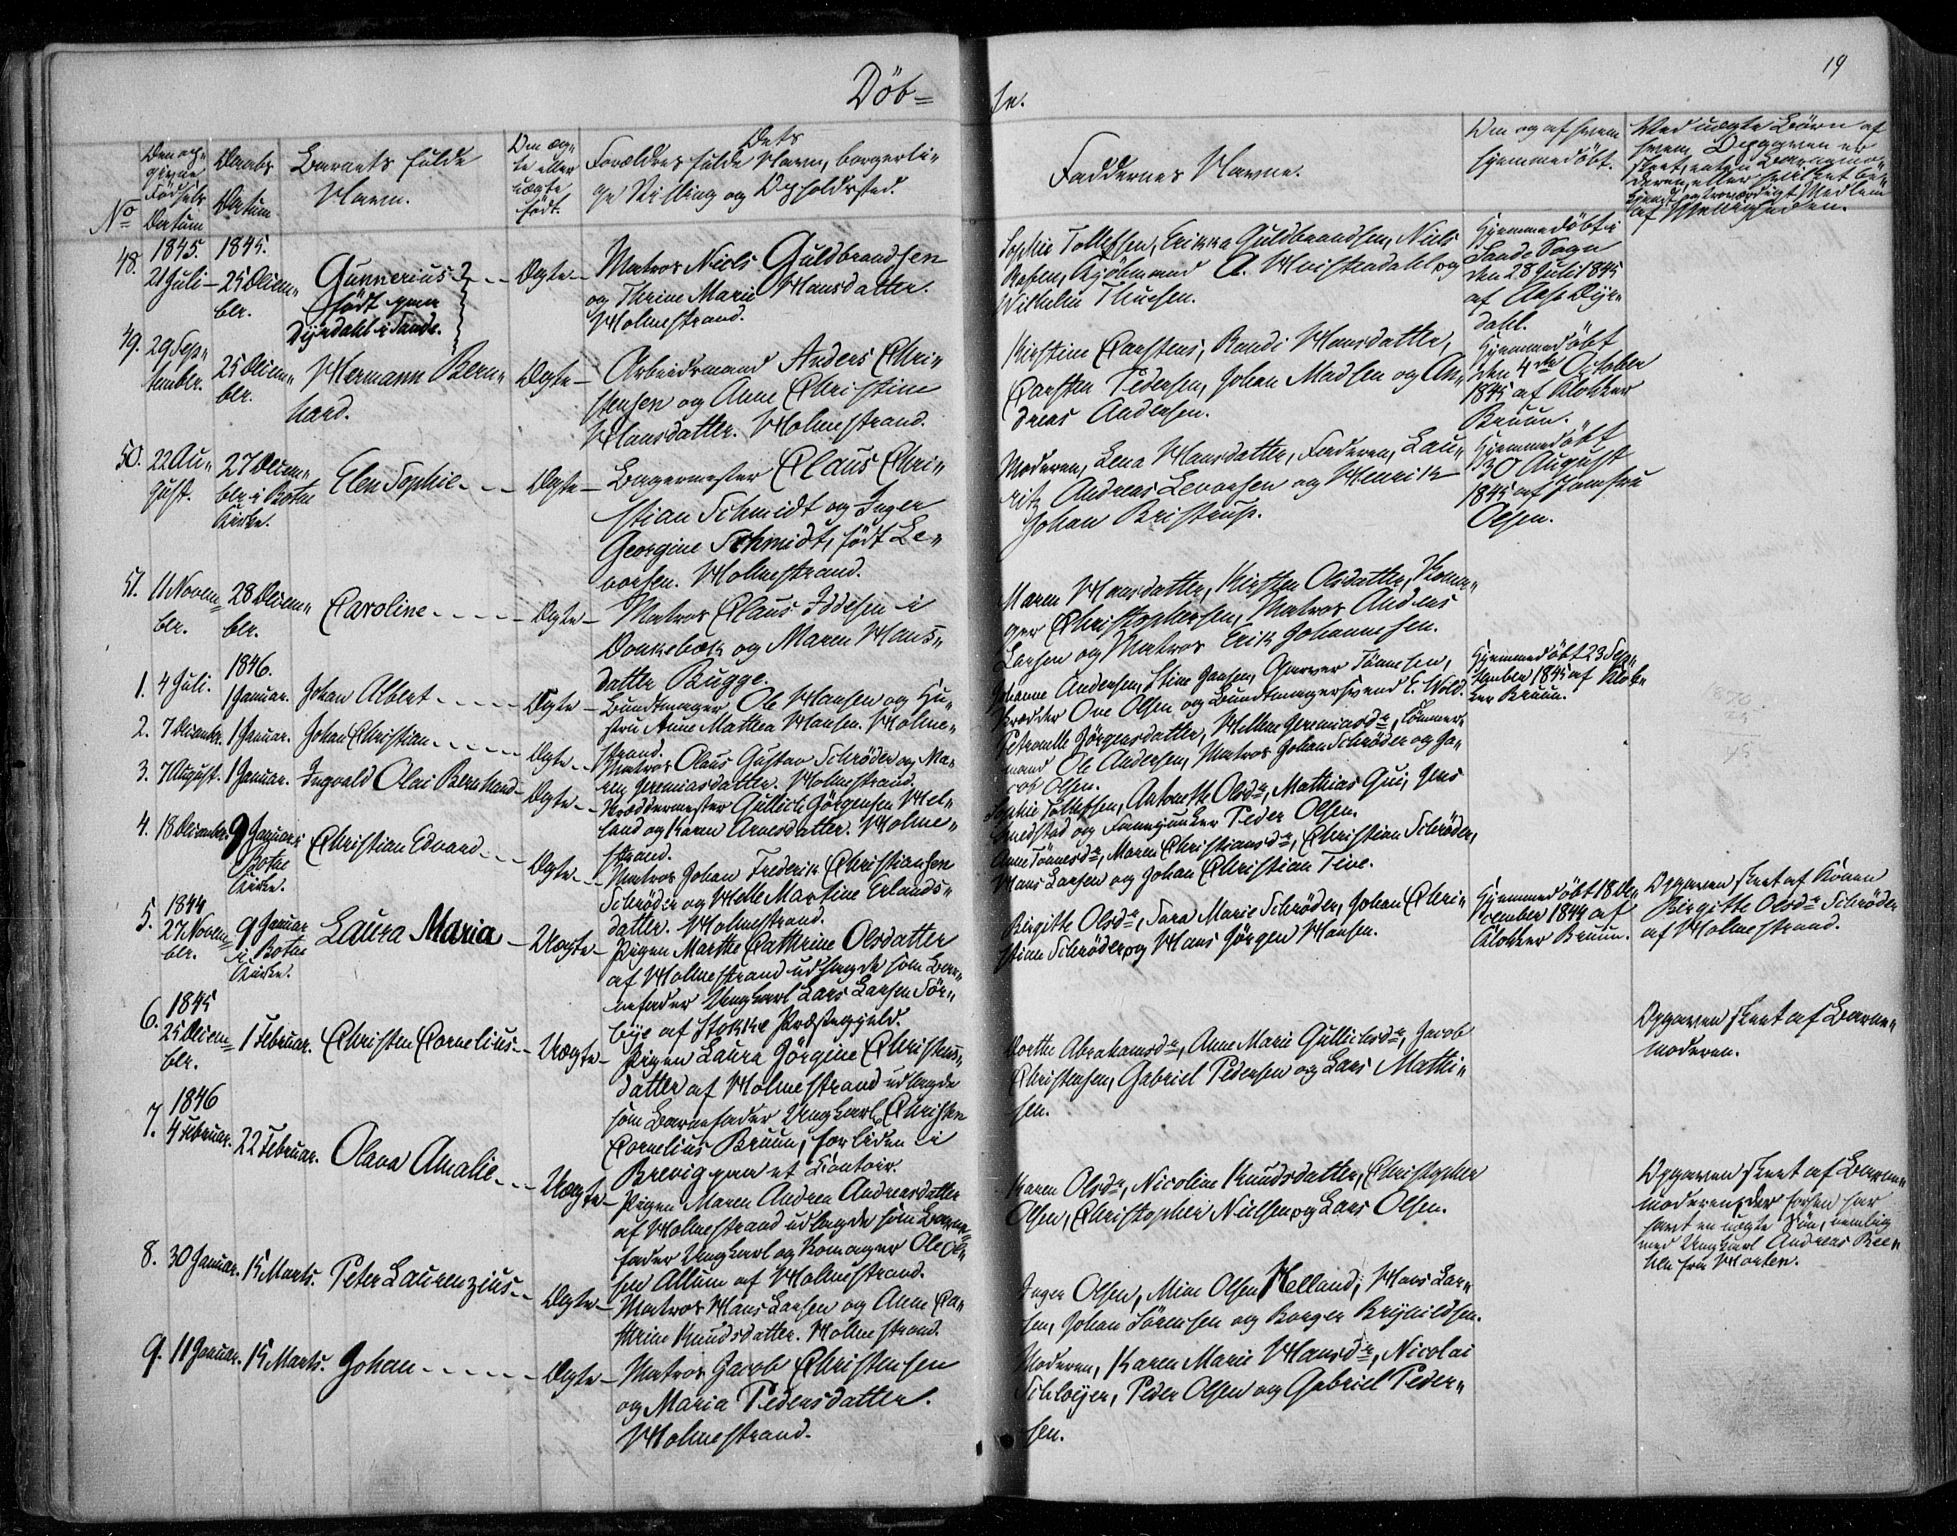 Döb=
te.
19
No
Den op=
givne
Födsels
Datum
Daabs
Datum
Barnets fulde
Navn.
Om æg=
te eller
uægte
födt.
Dets
Forældres fulde Navn, borgerli=
ge Stilling og Opholdssted.
Faddernes Navne.
Om og af hvem
hjemmedöbt.
Ved uægte Börn af
hvem Opgaven er
skeet, enten Barnemo=
deren, eller hvilket be=
kjendt og troværdigt Medlem
af Menigheden.
48.
1845.
21 Juli
1845.
25 Decem=
ber.
Gunnerius
födt paa
Dyrdahl i Sande.
Ægte
Matros Niels Guldbrandsen
og Thrine Marie Hansdatter.
Holmestrand.
Sophie Tollefsen, Erikka Guldbrandsen, Niels
Kjöbmand A. og
Wilhelm Thuesen.
Hjemmedöbt i
Sande Sogn
den 28 Juli 1845
af Aase Dyr=
dahl.
49.
29 Sep=
tember.
25 Decem=
ber.
Hermann Bern=
hard.
Ægte
Arbeidsmand Anders Chri=
stensen og Anne Christine
Hansdatter. Holmestrand.
Kirstine Carstens, Randi Hansdatter,
Carsten Pedersen, Johan Madsen og An=
dreas Andersen.
Hjemmedöbt
den 4de October
1845 af Klokker
Bruun.
50.
22 Au=
gust.
27 Decem=
ber i Botne
Kirke.
Elen Sophie
Ægte
Bagermester Claus Chri=
stian Schmidt og Inger
Georgine Schmidt, födt Le=
vorsen. Holmestrand.
Moderen, Lena Hansdatter, Faderen, Lau=
ritz Andreas Levorsen og Henrik
Johan Bristrup.
Hjemmedöbt
30 August
1845 af Jomfru
Olsen.
51.
11 Novem=
ber.
28 Decem=
ber.
Caroline
Ægte
Matros Claus Iddesen i
Dunkebæk og Maren Hans=
datter Bugge.
Maren Hansdatter, Kirsten Olsdatter, Koma=
ger Christophersen, Matros Anders
Larsen og Matros Erik Johannesen.
1.
4 Juli.
1846.
1 Januar.
Johan Albert
Ægte
Bundtmager Ole Hansen og Hu=
stru Anne Mathea Hansen. Holme=
strand.
Johanne Andersen, Stine Jansen, Garver Tönnesen,
Skrædder Ove Olsen og Bundtmagersvend E. Wold.
Hjemmedöbt 23 Sep=
tember 1845 af Klok=
ker Bruun.
2.
7 December.
1 Januar.
Johan Christian
Ægte
Matros Claus Gustav Schröder og Ma=
ren Jeremiasdatter. Holmestrand.
Petronelle Jörgensdatter, Helene Jeremiasdr, Tömmer=
mand Ole Andersen, Matros Johan Schröder og Ja=
cob Olsen.
3.
7 August.
1 Januar.
Ingvald Olai Bernhard
Ægte
Skræddermester Gullich Jörgensen Hel=
land og Karen Arnesdatter. Holme=
strand.
Sophie Tollefsen, Antonette Olsdr, Mathias Qui, Jens
og Peder Olsen.
4.
18 December
9 Januar i
Botne
Kirke.
Christian Edvard
Ægte
Matros Johan Frederik Christiansen
Schröder og Helle Martine Erlands=
datter. Holmestrand.
Anne Tönnesdr, Maren Christiansdr, Christian Schröder,
Hans Larsen og Johan Christian Tine.
5.
1844
27 Novem=
ber.
9 Januar
i Botne
Kirke.
Laura Maria
Uægte
Pigen Marthe Cathrine Olsdatter
af Holmestrand udlagde som Bar=
nefader Ungkarl Lars Larsen Tör=
bye af Stokke Præstegjeld.
Birgitte Olsdr, Sara Marie Schröder, Johan Chri=
stian Schröder og Hans Jörgen Hansen.
Hjemmedöbt 18 De=
cember 1844 af
Klokker Bruun.
Opgaven skeet af Konen
Birgitte Olsdr Schröder
af Holmestrand.
6.
1845
25 Decem=
ber.
1 Februar.
Christen Cornelius
Uægte
Pigen Laura Jörgine Christens=
datter af Holmestrand udlagde
som Barnefader Ungkarl Christen
Cornelius Bruun, forliden i
Brevig paa et Contoir.
Dorthe Abrahamsdr, Anne Marie Gullichsdr, Jacob
Christensen, Gabriel Pedersen og Lars Mathi=
sen.
Opgaven skeet af Barne=
moderen.
7.
1846
4 Februar.
22 Februar.
Olava Amalie
Uægte
Pigen Maren Andrea Andreasdatter
af Holmestrand udlagde som Barne=
fader Ungkarl og Komager Ole Ol=
sen Allum af Holmestrand.
Karen Olsdr, Nicoline Knudsdatter, Christopher
Olsen, Christopher Nielsen og Lars Olsen.
Opgaven skeet af Barne=
moderen, der forhen har
havt en uægte Sön, nemlig
med Ungkarl Andreas
fra Horten.
8.
30 Januar.
15 Marts.
Peter Laurenzius
Ægte
Matros Hans Larsen og Anne Ca=
thrine Knudsdatter. Holmestrand.
Inger Olsen, Mine Olsen Helland, Hans Lar=
sen, Johan Sörensen og Borger Brynildsen.
9.
11 Januar.
15 Marts.
Johan
Ægte
Matros Jacob Christensen
og Maria Pedersdatter.
Holmestrand.
Moderen, Karen Marie Hansdr, Nicolai
Peder Olsen og Gabriel Peder=
sen.